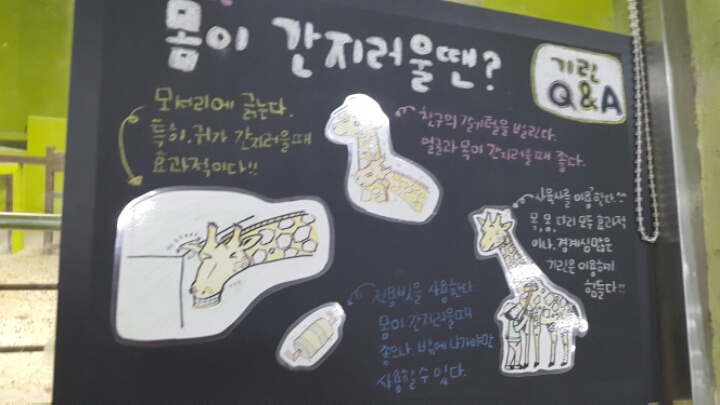 몸이 간지러울땐?
기린
Q&A
모서리에 긁는다.
특히, 귀가 간지러울때
효과적이다!!
친구의 갈기털을 빌린다.
얼굴과 목이 간지러울때 좋다.
사육사를 이용한다.^^
목, 몸, 다리 모두 효과적
이나, 경계심많은
기린은 이용하기
힘들다!!
전용빗을 사용한다
몸이 간지러울때
좋으나, 밖에 나가야만
사용할 수 있다.